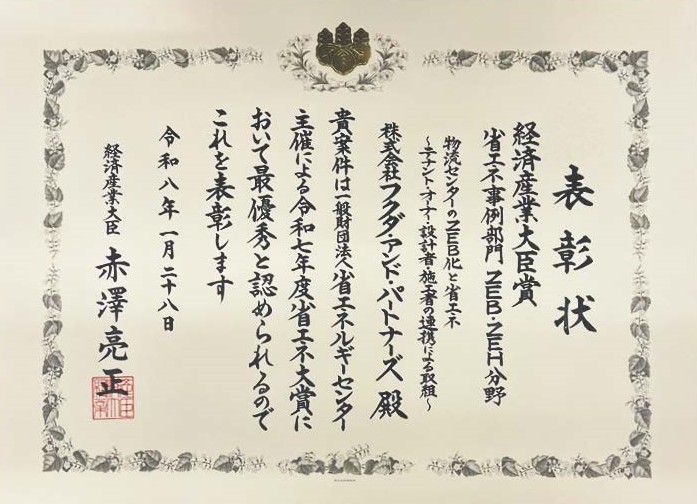 表彰状
経済産業大臣賞
省エネ事例部門 ZEB・ZEH分野
物流センターのZEB化と省エネ
～テナント・オーナー・設計者・施工者の連携による取組～
株式会社フクダ・アンド・パートナーズ 殿
貴案件は一般財団法人省エネルギーセンター
主催による令和七年度省エネ大賞に
おいて最優秀と認められるので
これを表彰します
令和八年一月二十八日
経済産業大臣 赤澤亮正